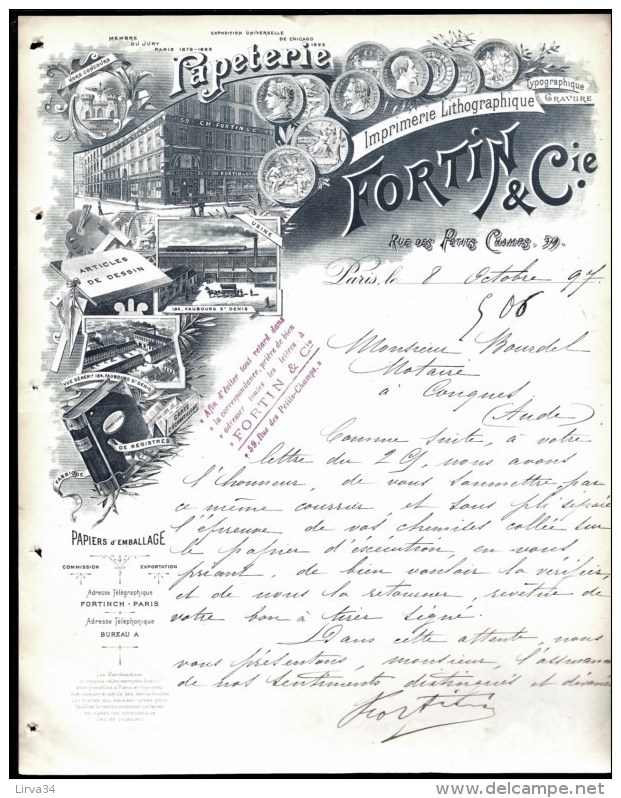 MEMBRE
DU JURY
PARIS 1878-1889
EXPOSITION UNIVERSELLE
DE CHICAGO
1893
HORS CONCOURS
Papeterie
Imprimerie Lithographique
Typographique
GRAVURE
59 CH. FORTIN & Cie
FORTIN
& Cie
RUE DES PETITS CHAMPS. 59.
USINE
184, FAUBOURG ST DENIS
ARTICLES
DE DESSIN
VUE GÉNÉRle 184, FAUBOURG ST DENIS
FABRIQUE
DE REGISTRES
Afin d'éviter tout retard dans
la correspondance, prière de bien
adresser toutes les lettres à
FORTIN & Cie
59, Rue des Petits-Champs.
Paris, le 8 Octobre 97
506
Monsieur Bourdel
Notaire
à Conques
Aude
Comme suite, à votre
lettre du 29, nous avons
l'honneur, de vous soumettre, par
ce même courrier, et sous pli séparé
l'épreuve de vos chemises collée sur
le papier d'exécution, en vous
priant, de bien vouloir la vérifier,
et de nous la retourner, revêtue de
votre bon à tirer signé.
Dans cette attente, nous
vous présentons, monsieur, l'assurance
de nos sentiments distingués et dévoués
Fortin
PAPIERS d'EMBALLAGE
COMMISSION EXPORTATION
Adresse Télégraphique
FORTINCH-PARIS
Adresse Téléphonique
BUREAU A
Les Marchandises
Lirva34
delcampe.net